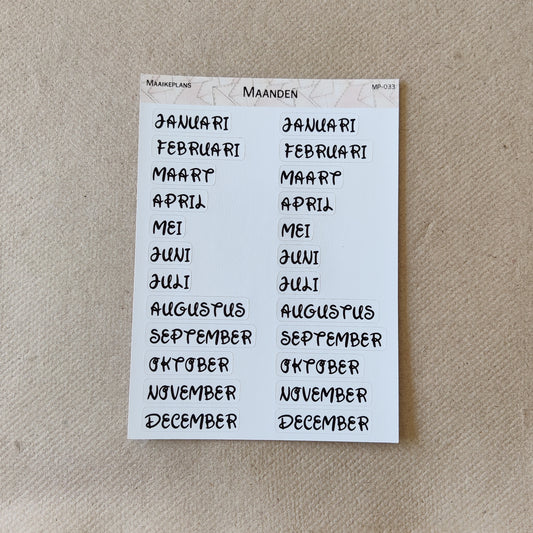 MAAIKEPLANS MAANDEN MP-033
JANUARI JANUARI
FEBRUARI FEBRUARI
MAART MAART
APRIL APRIL
MEI MEI
JUNI JUNI
JULI JULI
AUGUSTUS AUGUSTUS
SEPTEMBER SEPTEMBER
OKTOBER OKTOBER
NOVEMBER NOVEMBER
DECEMBER DECEMBER